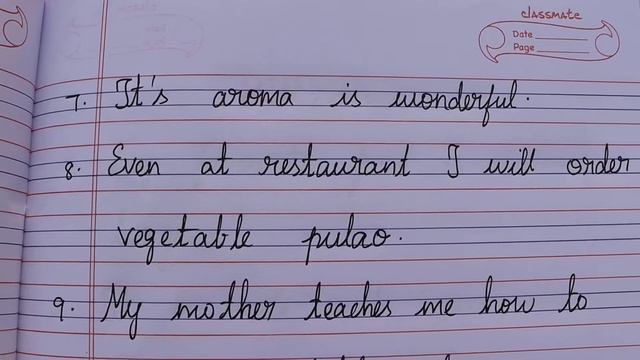 classmate
Date
Page
7. It's aroma is wonderful.
8. Even at restaurant I will order
vegetable pulao.
9. My mother teaches me how to